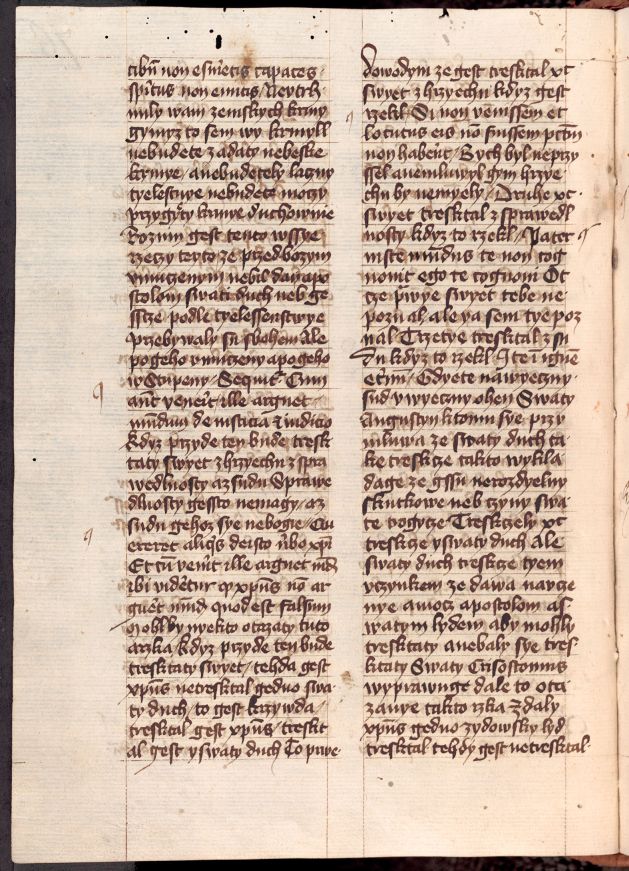 cibū non esuͥetis capaces
spūtus non eritis / Neutrh
muly wam zemskych krmy
gymyz to sem wy krmyll
nebudete zadaty nebeske
krmye / a nebudetely laczny
tyelestnye nebudete moczy
przygyty krmye duchownie
Rozum gest tento wssye
rzeczy teyto ze przed bozym
vmuczenym nebil dan apo
stolom swati duch neb ge
sscze podle tyelessenstwye
przebywaly su s bohem Ale
po geho vmuczeny a po geho
wstupeny / Sequit Cum
aūt venerit ille arguet
mūdum de iusticia et iudicio
kdyz przyde ten bude tresk
taty swyet z hrzyechu z spra
wedlnosty a z sudu Sprawe
dlnosty gessto nemagy / a z
sudu gehoz sye nebogie / Qu
ereret aliqs de isto ūbo xpi
Et cū venit ille arguet mūd
ibi videtur qp xpūs nō ar
guet mūd quod est falsum
mohl by nyekto otazaty tuto
a rzka / kdyz przyde ten bude
tresktaty swyet / tehda gest
xpūs netresktal geduo swa
ty duch / to gest krzywda /
tresktal gest xpūs / treskt
al gest y swaty duch To prwe
dowodym ze gest tresktal xt
swyet z hrzyechu kdyz gest
rzekl / Si non venissem et
locutus eis nō fuissem pctm
non haberet / Bych byl neprzy
ssel a nemluwyl gym hrzye
chu by nemyely / Druhe xt
swyet tresktal z sprawedl
nosty kdyz to rzekl / Pater
iuste mūdus te non cog
nouit ego te cognoui Ot
cze prwye swyet tebe ne
poznal ale ya sem tye poz
nal Trzetye tresktal z su
du kdyz to rzekl / Ite i igne
eternū / Gdyete na wyeczny
sud y wyeczny ohen Swaty
Augustyn k tomu sye przy
mluwa ze swaty duch ta
ke tresktze takto wykla
dage ze gssu nerozdyelny
skutkowe neb czyny swa
te trogycze Tresktzely xt
tresktze y swaty duch Ale
swaty duch tresktze tyem
vczynkem ze dawa naucze
nye a mocz apostolom a s
watym lydem aby mohly
tresktaty a nebaly sye tres
ktaty Swaty Crisostomus
wyprawuge dale to ota
zanye takto rzka Zdaly
xpūs geduo zydowsky lyd
tresktal tehdy gest netresktal